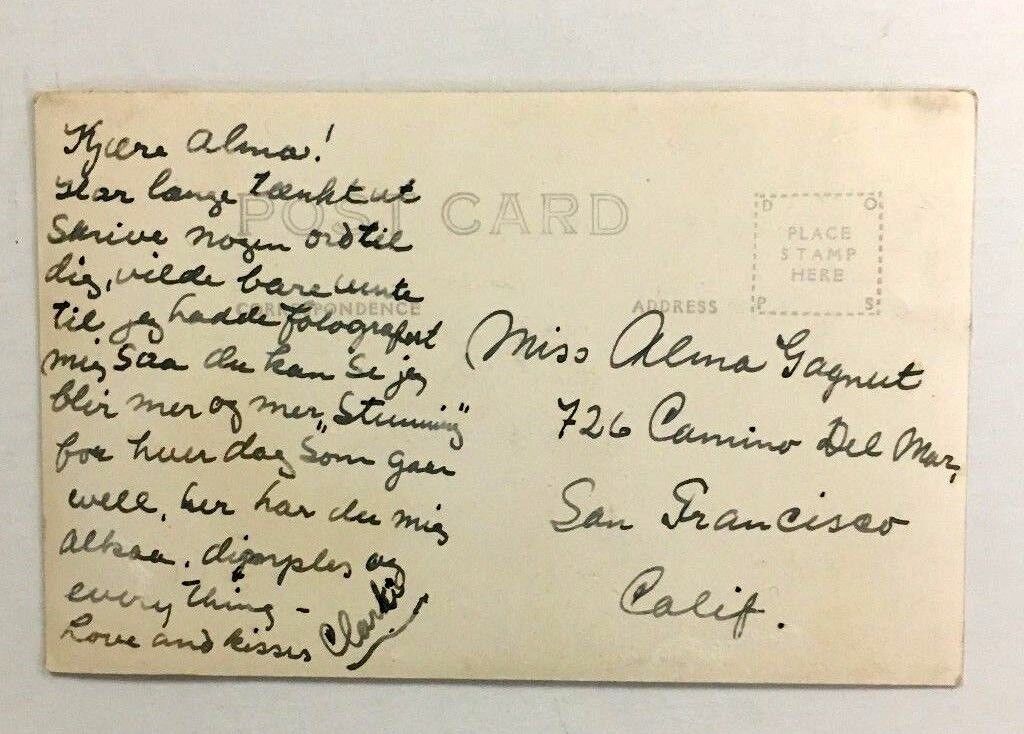 Kjære Alma!
Har længe tænkt at
Skrive nogen ord til
dig, vilde bare vente
til jeg hadde fotografert
mig Saa du kan Se jeg
blir mer og mer „Stunning"
for hver dag Som gaar
well, her har du mig
altsaa. dimples og
everything –
Love and kisses
POST CARD
CORRESPONDENCE
ADDRESS
D O
PLACE
STAMP
HERE
P S
Miss Alma Gagnut
726 Camino Del Mar,
San Francisco
Calif.